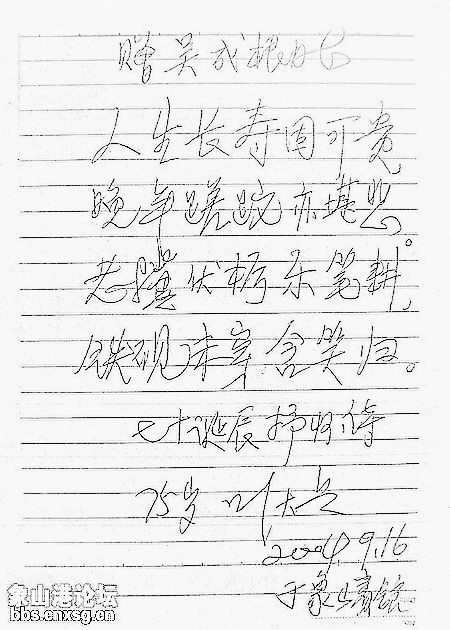 赠吴成根
人生长寿固可贵,
晚年蹉跎亦堪悲。
老骥伏枥乐笔耕,
铁砚未穿含笑归。
七十诞辰抒怀诗
75岁 叶大兵
2004.9.16
于象山
象山港论坛
bbs.cnxsg.cn